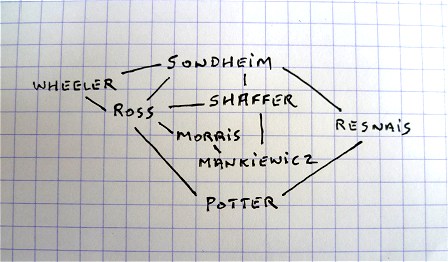 SONDHEIM
WHEELER
SHAFFER
ROSS
RESNAIS
MORRIS
MANKIEWICZ
POTTER